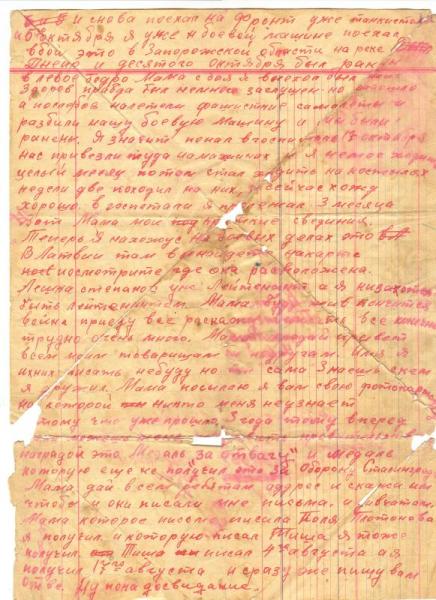 и снова поехал на фронт уже танкистом
и 6 октября я уже на боевой машине поехал
в бой это в Запорожской области на реке
Днепр и десятого октября был ранен
в левое бедро Мама с боя я выехал был
здоров правда был немного заслушен но
а после налетели фашистие самолёты и
разбили нашу боевую машину и мы были
ранены. Я значит попал в госпиталь 17 октября
нас привезли туда на машинах я немог ходить
целый месяц потом стал ходить на костылях
недели две походил на них сейчас хожу
хорошо. в госпитали я пролежал 3 месяца
Вот Мама мои свединия.
Теперь я нахожусь на боевых делах это
В Латвии там вы найдёте на карте
посмотрите где она расположена.
Лёшка степанов уже Лейтенант а я низахотел
быть лейтенантом Мама жив кончится
война приеду всё расскажу все
трудно очень много. Мама передай привет
всем моим товарищам и подругам имя я
ихних писать небуду но сама знаеш с кем
я дружил. Мама посылаю я вам свою фотокарточку
на которой никто меня неузнает
потому что уже прошло 3 года тому вперед
наградой это Медаль "За отвагу" и медаль
которую ещё не получил это За Оборону Сталинграда
Мама, дай всем ребятам адрес и скажи им
чтобы и они писали мне письма. и девчатам
Мама которое письмо писала Поля Платонова
я получил и которую писал Тиша я тоже
получил. Тиша писал 4го августа а я
получил 17го августа и сразу же пишу вам
ответ. Ну пока досвидание.